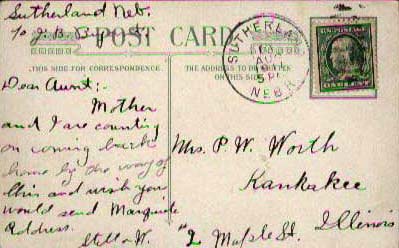 Sutherland Neb.
POST CARD
THIS SIDE FOR CORRESPONDENCE.
THE ADDRESS TO BE
ON THIS SIDE.
SUTHERLAND
5 P
NEBR
U.S. POSTAGE
ONE CENT
Dear Aunt:-
Mother
and I are counting
on coming back
home by the way of
this and wish you
would send Marguerite
Address.
Mrs. P. W. Worth
Kankakee
Illinois
Maple St.